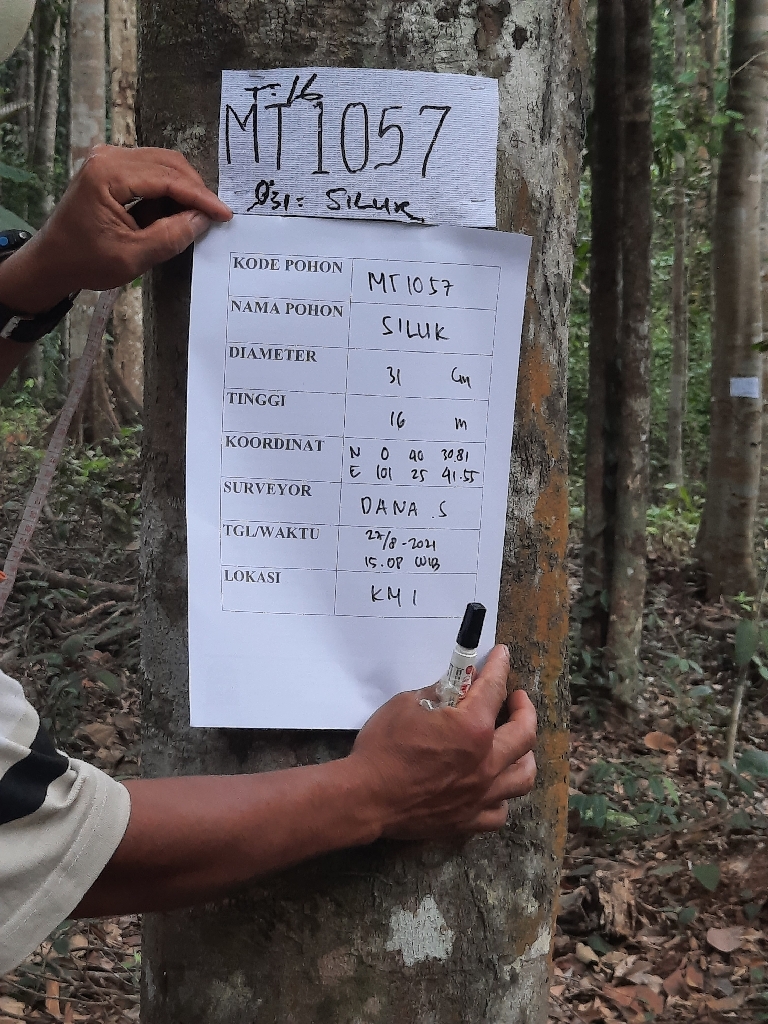 T: 16
MT1057
Ø31: SILUK
KODE POHON MT1057
NAMA POHON SILUK
DIAMETER 31 Cm
TINGGI 16 m
KOORDINAT N 0 40 30.81
E 101 25 41.55
SURVEYOR DANA.S
TGL/WAKTU 27/8-2021
15.08 WIB
LOKASI KM 1